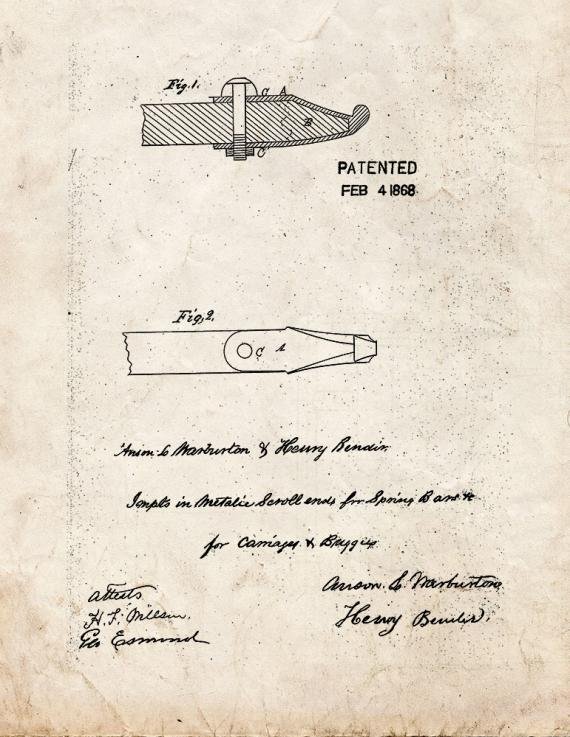 Fig. 1.
C A
B
C
PATENTED
FEB 4 1868
Fig. 2.
C A
Anson C Warburton & Henry Bendir
Impts in Metalic Scroll ends for Spring Bars &c
for Carriages & Buggies
Attests
H. F. Willson.
Geo Esmund
Anson C. Warburton
Henry